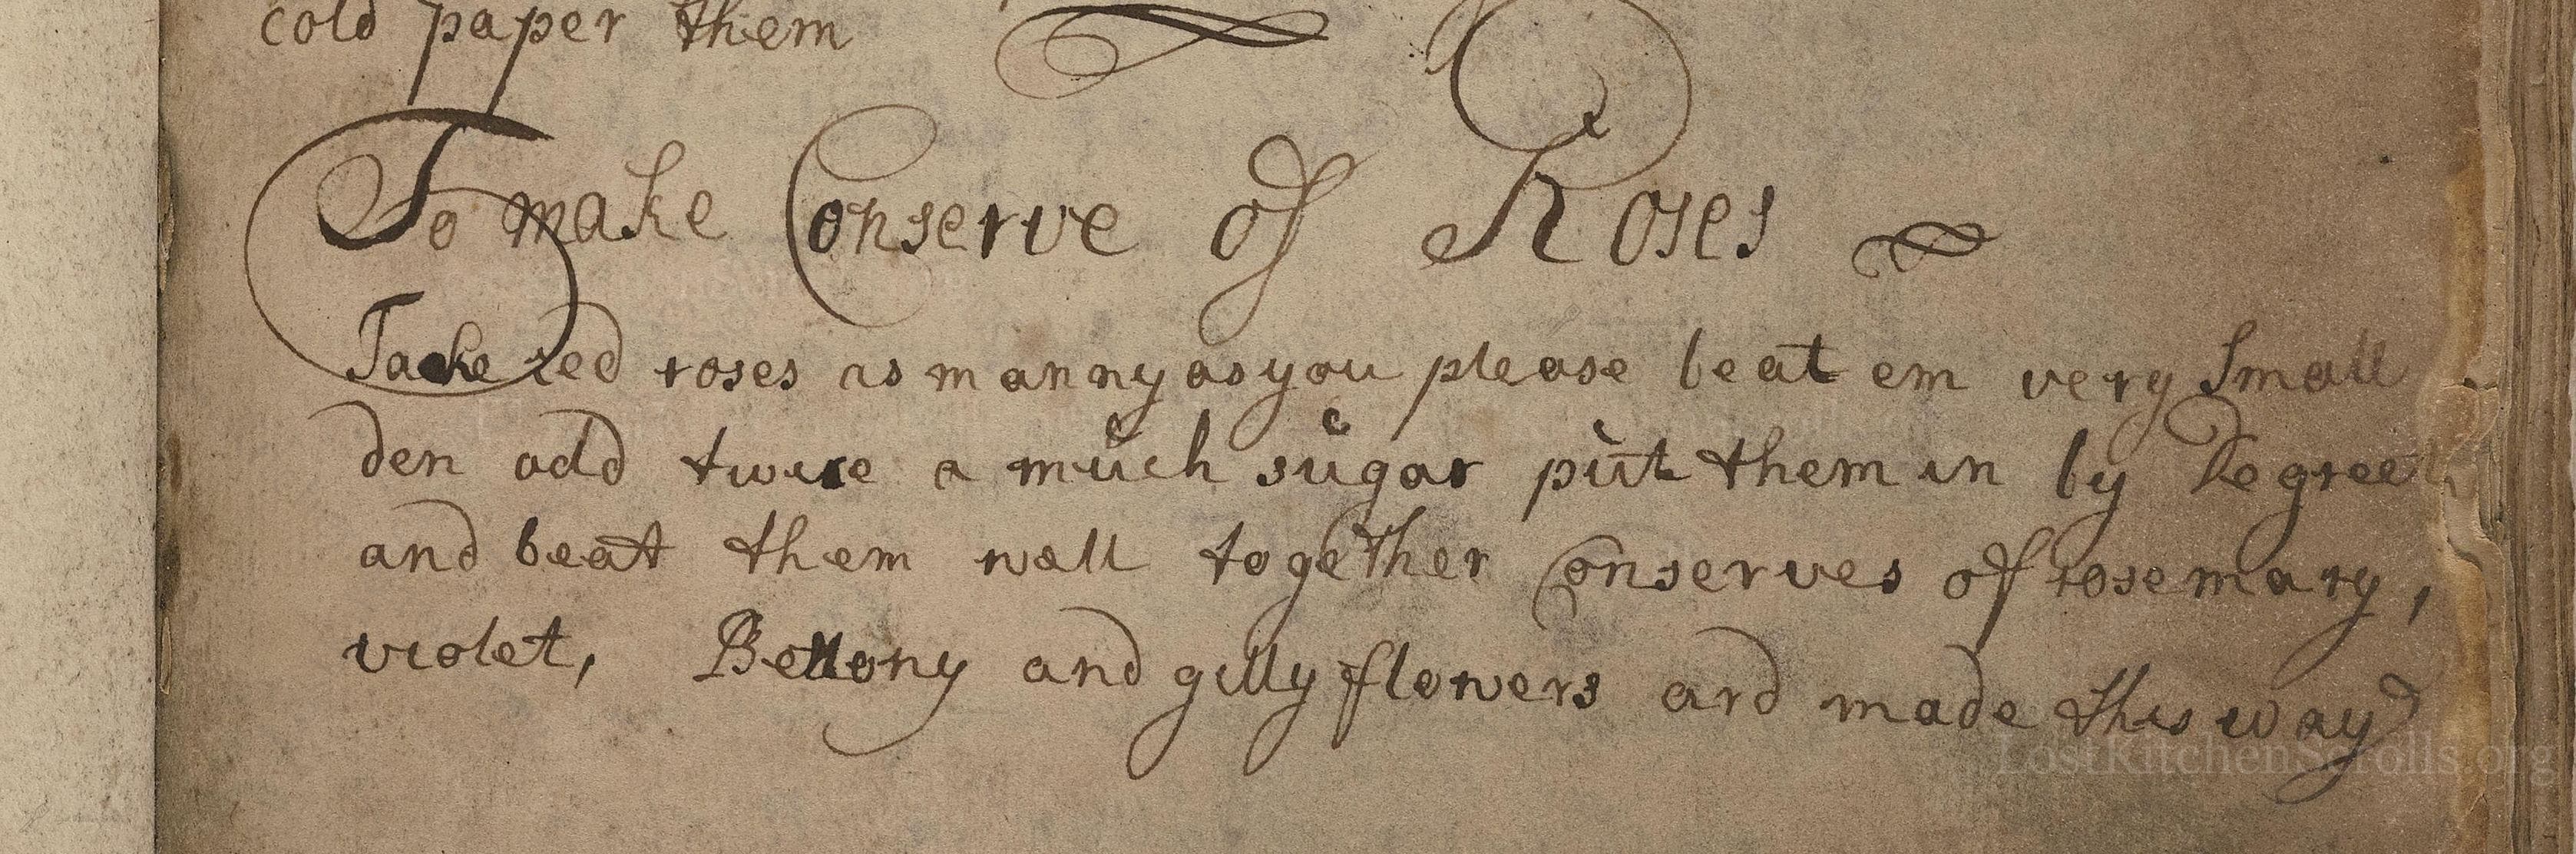 cold paper them
To make Conserve of Roses
Take red roses as manny as you please beat em very Small
den add twice a much sugar put them in by Degrees
and beat them well together Conserves of rosemary,
violet, Bettony and gilly flowers ard made this way
LostKitchenScrolls.org